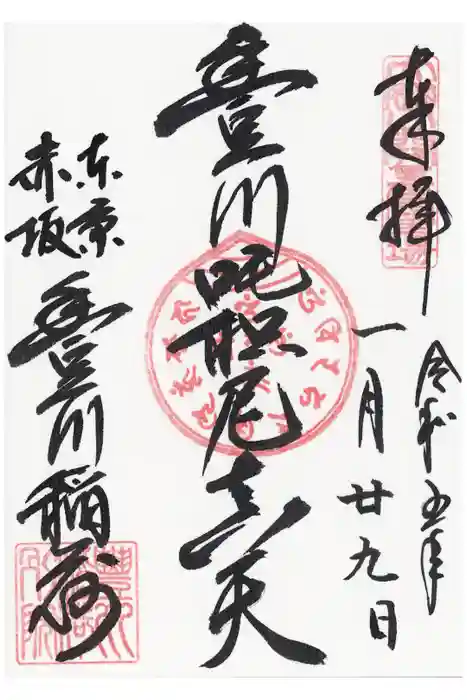 奉拝
令和五年
一月廿九日
豊川吒枳尼真天
東京
赤坂
豊川稲荷